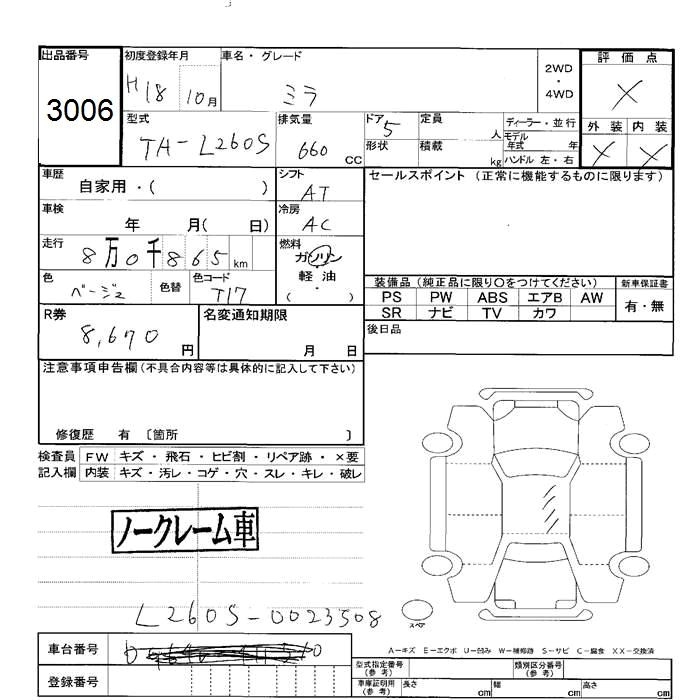 出品番号 初度登録年月 車名・グレード 評価点
3006 H18 10月 ミラ 2WD・4WD ×
型式 排気量 ドア 定員 ディーラー・並行 外装 内装
TA-L260S 660 CC 5 人 モデル年式 年 × ×
形状 積載 kg ハンドル 左・右
車歴 シフト セールスポイント (正常に機能するものに限ります)
自家用・( ) AT
車検 冷房
年 月( 日) AC
走行 燃料
8万0千865 km ガソリン
軽油
・
( )
色 色替 色コード
ベージュ T17
装備品(純正品に限り〇をつけてください) 新車保証書
PS PW ABS エアB AW 有・無
SR ナビ TV カワ
R券 名変通知期限 後日品
8,670円 月 日
注意事項申告欄(不具合内容等は具体的に記入して下さい)
修復歴 有 〔箇所 〕
検査員 FW キズ・飛石・ヒビ割・リペア跡・×要
記入欄 内装 キズ・汚レ・コゲ・穴・スレ・キレ・破レ
ノークレーム車
L260S-0023508
スペア
車台番号
A-キズ E-エクボ U-凹み W-補修跡 S-サビ C-腐食 XX-交換済
型式指定番号(参考) 類別区分番号(参考)
登録番号 車庫証明用(参考) 長さ cm 幅 cm 高さ cm